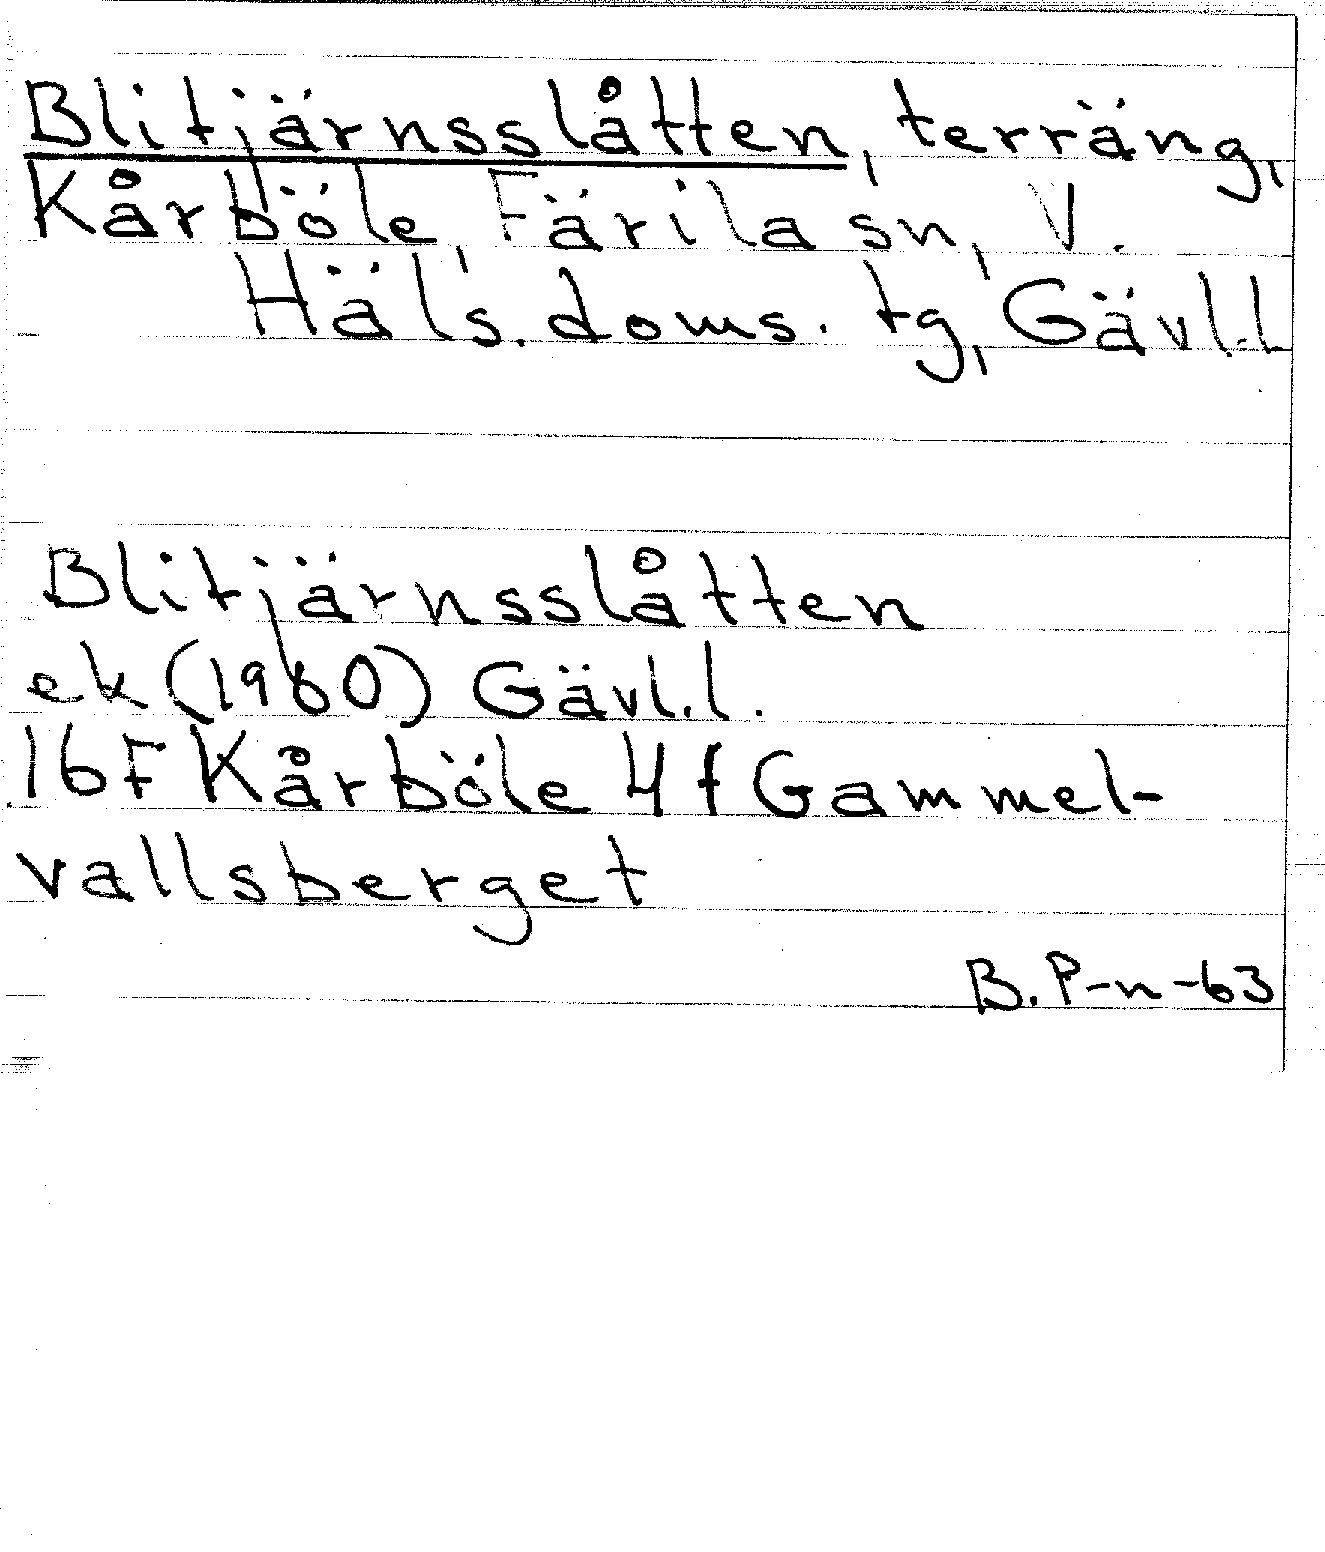 Blitjärnsslåtten, terräng,
Kårböle, Färila sn, V.
Häls. doms. tg, Gävl.l
Blitjärnsslåtten
ek (1960) Gävl.l.
16F Kårböle 4f Gammel-
vallsberget
B. P-n-63